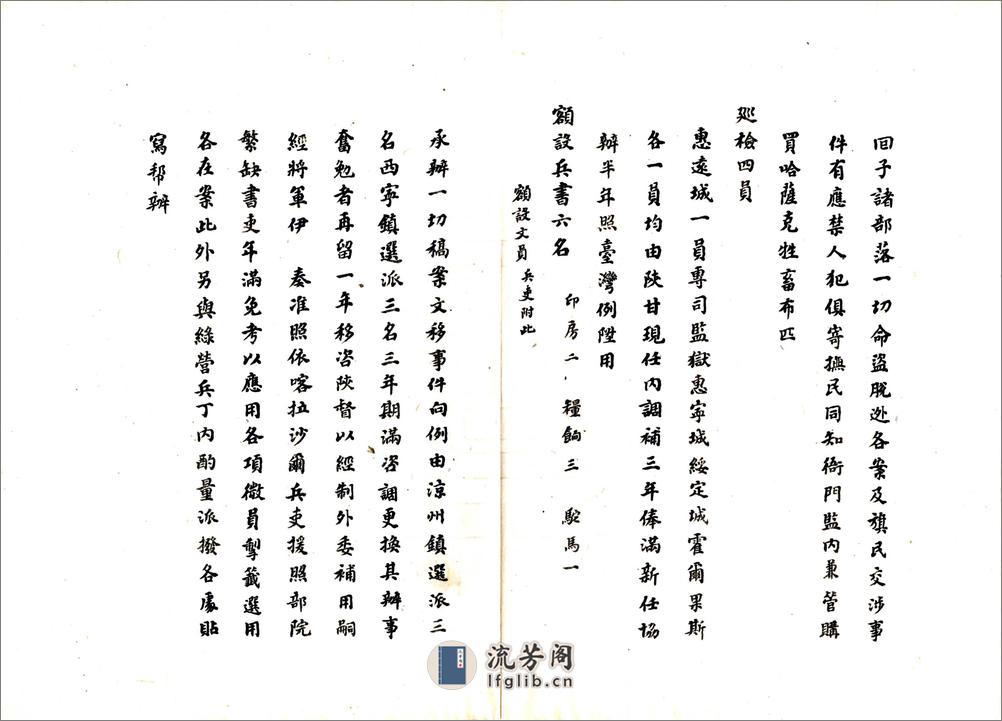 回子諸部落一切命盜脫逃各案及旗民交涉事
件有應禁人犯俱寄撫民同知衙門監內兼管購
買哈薩克牲畜布匹
廵檢四員
惠遠城一員專司監獄惠寧城綏定城霍爾果斯
各一員均由陝甘現任內調補三年俸滿新任協
辦半年照臺灣例陞用
額設文員兵吏附此
額設兵書六名 印房二 糧餉三 駝馬一
承辦一切稿案文移事件向例由涼州鎮選派三
名西寧鎮選派三名三年期滿咨調更換其辦事
奮勉者再留一年移咨陝督以經制外委補用嗣
經將軍伊 奏准照依喀拉沙爾兵吏援照部院
繁缺書吏年滿免考以應用各項微員掣籤選用
各在案此外另與綠營兵丁內酌量派撥各處貼
寫帮辦
流芳阁
lfglib.cn